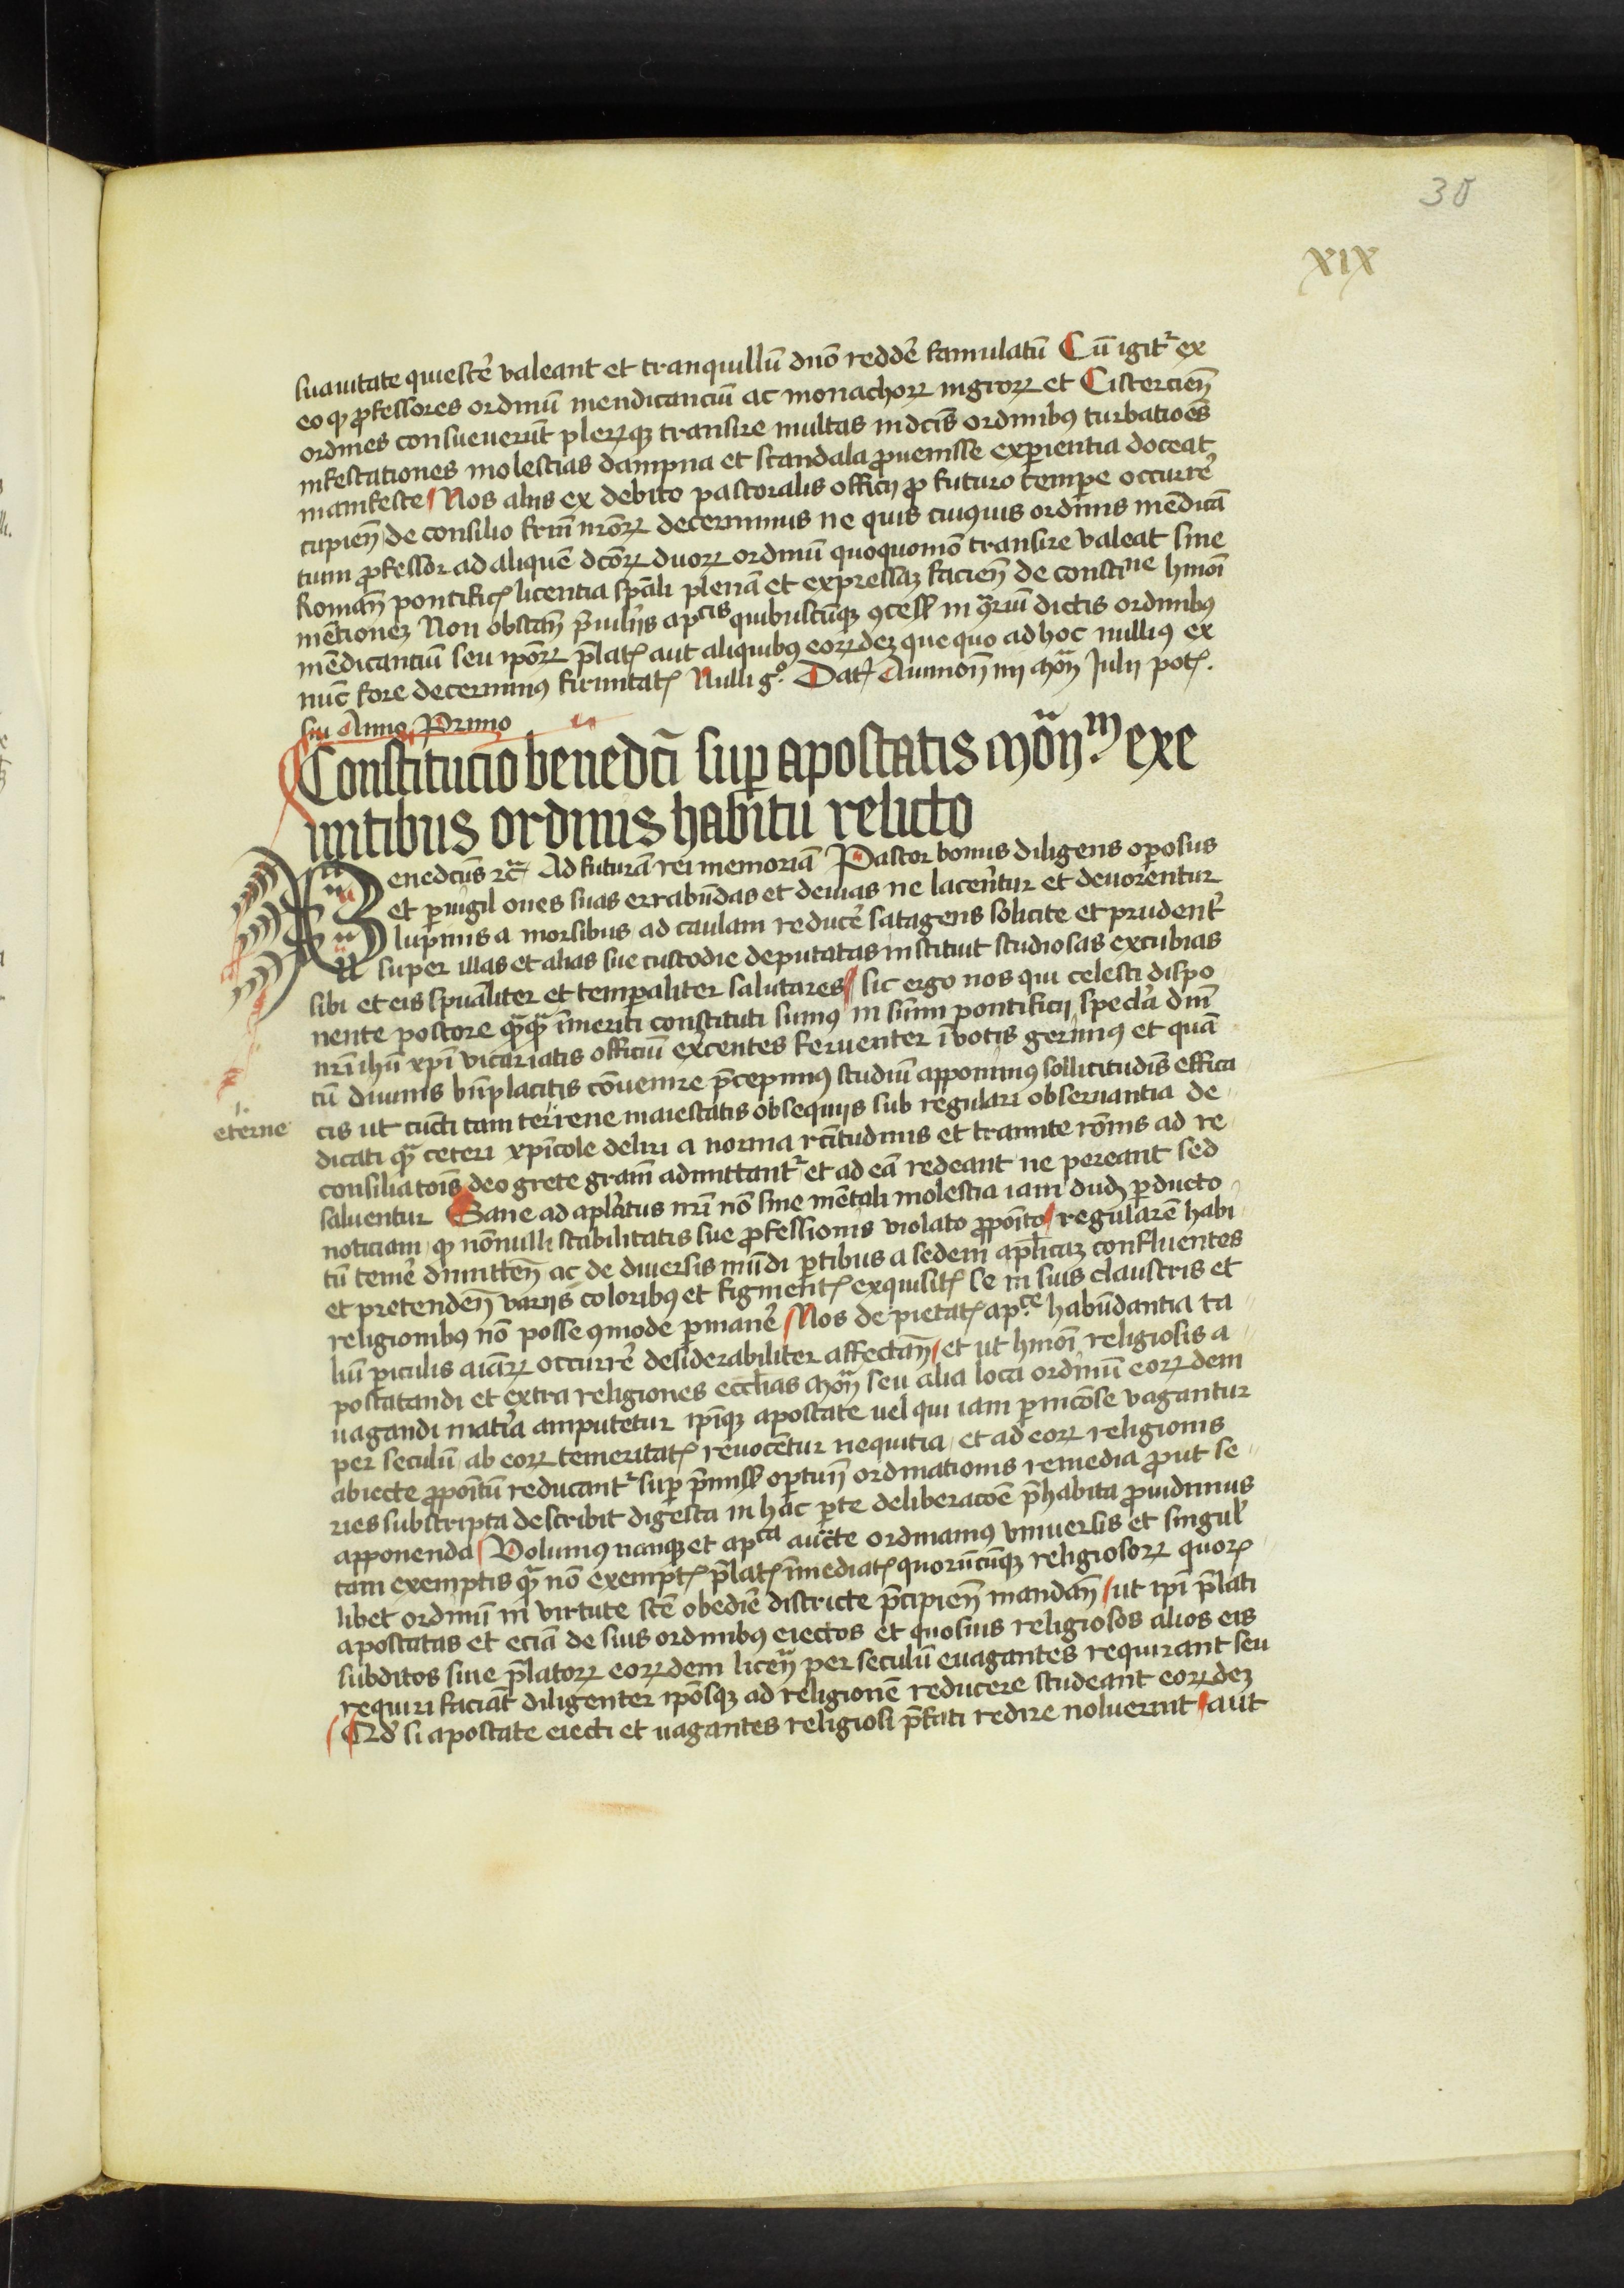 30
xix
suauitate quiescẽ valeant et tranquillũ dnõ reddẽ famulatũ Cũ igitᷣ ex
eo ꝙ ꝓfessores ordinũ mendicanciũ ac monachoꝝ nigroꝝ et Cistercien̄
ordines consueuerũt plerũqꝫ transire multas in dc̄is ordinibꝰ turbatioēs
infestationes molestias dampna et scandala ꝓuenisse exꝑientia doceat
manifeste Nos aliis ex debito pastoralis officij ꝓ futuro temꝑe occurrẽ
cupien̄ de consilio frm̄ nr̄oꝝ decernimus ne quis cuiusuis ordinis mẽdicã
tium ꝓfessor ad aliquẽ dc̄oꝝ duoꝝ ordinũ quoquomõ transire valeat sine
Roman̄ pontificꝭ licentia spāli plenã et expressaꝫ facien̄ de constine hmōi
mẽtioneꝫ Non obstan̄ p̄uilijs apcis quibuscũqꝫ ꝯcess̄ in ꝯͣriũ dictis ordinibꝰ
mẽdicantiũ seu ipōꝝ p̄latꝭ aut aliquibꝰ eoꝝdeꝫ que quo ad hoc nulliꝰ ex
nũc fore decernimꝰ firmitatꝭ Nulli gͦ. Datꝭ Auinion̄ iiij Nōn Julij potꝭ.
sui Anno Primo
Constitucio benedc̄i suꝑ apostatis Mōn.m exe
untibus ordinis habitu relicto
Benedcūs ꝛc̄ Ad futurã rei memoriã Pastor bonus diligens oꝑosus
et ꝑuigil oues suas errabũdas et deuias ne lacẽrtur et deuorentur
lupinis a morsibus ad caulam reducẽ satagens solicite et prudenẽ
super illas et alias sue custodie deputatas instituit studiosas excubias
sibi et eis spũaliter et temꝑaliter salutares sic ergo nos qui celesti dispo
nente pastore qᷓqᷓ ĩmeriti constituti sumꝰ in sũmi pontificij specl̄a dnī
nr̄i ihū xp̄i vicariatis officiũ exẽcentes feruenter ĩ votis gerimꝰ et quã
tũ diuinis bn̄placitis cõuenire p̄cepimꝰ studiũ apponimꝰ sollicitudis̄ effica
eterne
cis ut cũcti tam terrene maiestatis obsequijs sub regulari obseruantia de
dicati qᷓ ceteri xp̄icole deliri a norma rc̄itudinis et tramite rōnis ad re
consiliatois̄ deo grete gram̄ admittantᷣ et ad eã redeant ne pereant sed
saluentur Sane ad apl̄atus nr̄i nō sine mẽtali molestia iam dudꝫ ꝑducto
noticiam ꝙ nõnulli stabilitatis sue ꝓfessionis violato ꝓpoīto regularẽ habi
tũ temẽ dimitten̄ ac de diuersis mũdi ꝑtibus a sedem apl̄icaꝫ confluentes
et pretenden̄ varijs coloribꝰ et figmentꝭ exquisitꝭ se in suis claustris et
religionibꝰ nõ posse ꝯmode ꝑmanẽ Nos de pietatꝭ apce habũdantia ta
liũ ꝑiculis aiaꝝ occurrẽ desiderabiliter affectan̄ et ut hmōi religiosis a
postatandi et extra religiones eccl̄ias Mōn seu alia loca ordinũ eoꝝdem
uagandi matīa amputetur ip̄iqꝫ apostate uel qui iam ꝑnicōse vagantur
per seculũ ab eoꝝ temeritatꝭ reuocẽtur nequitia et ad eoꝝ religionis
abiecte ꝓpoītũ reducantᷣ suꝑ p̄miss̄ oportuñ ordinationis remedia ꝓut se
ries subscripta describit digesta in hac ꝑte deliberacōe p̄habita ꝓuidimus
apponenda Volumꝰ nanqꝫ et apca auc̄te ordinamꝰ vniuersis et singuł
tam exemptis qᷓ nõ exemptꝭ p̄latꝭ ĩmediatꝭ quorũcũqꝫ religiosoꝝ quoꝝ
libet ordinũ in virtute sc̄e obediẽ districte p̄cipien̄ mandan̄ ut ip̄i p̄lati
apostatas et eciã de suis ordinibꝰ eiectos et quosuis religiosos alios eis
subditos sine p̄latoꝝ eoꝝdem licen̄ per seculũ euagantes requirant seu
requiri faciãt diligenter ipōsqꝫ ad religionẽ reducere studeant eoꝝdeꝫ
Qd̄ si apostate eiecti et uagantes religiosi p̄fati redire noluerint aut